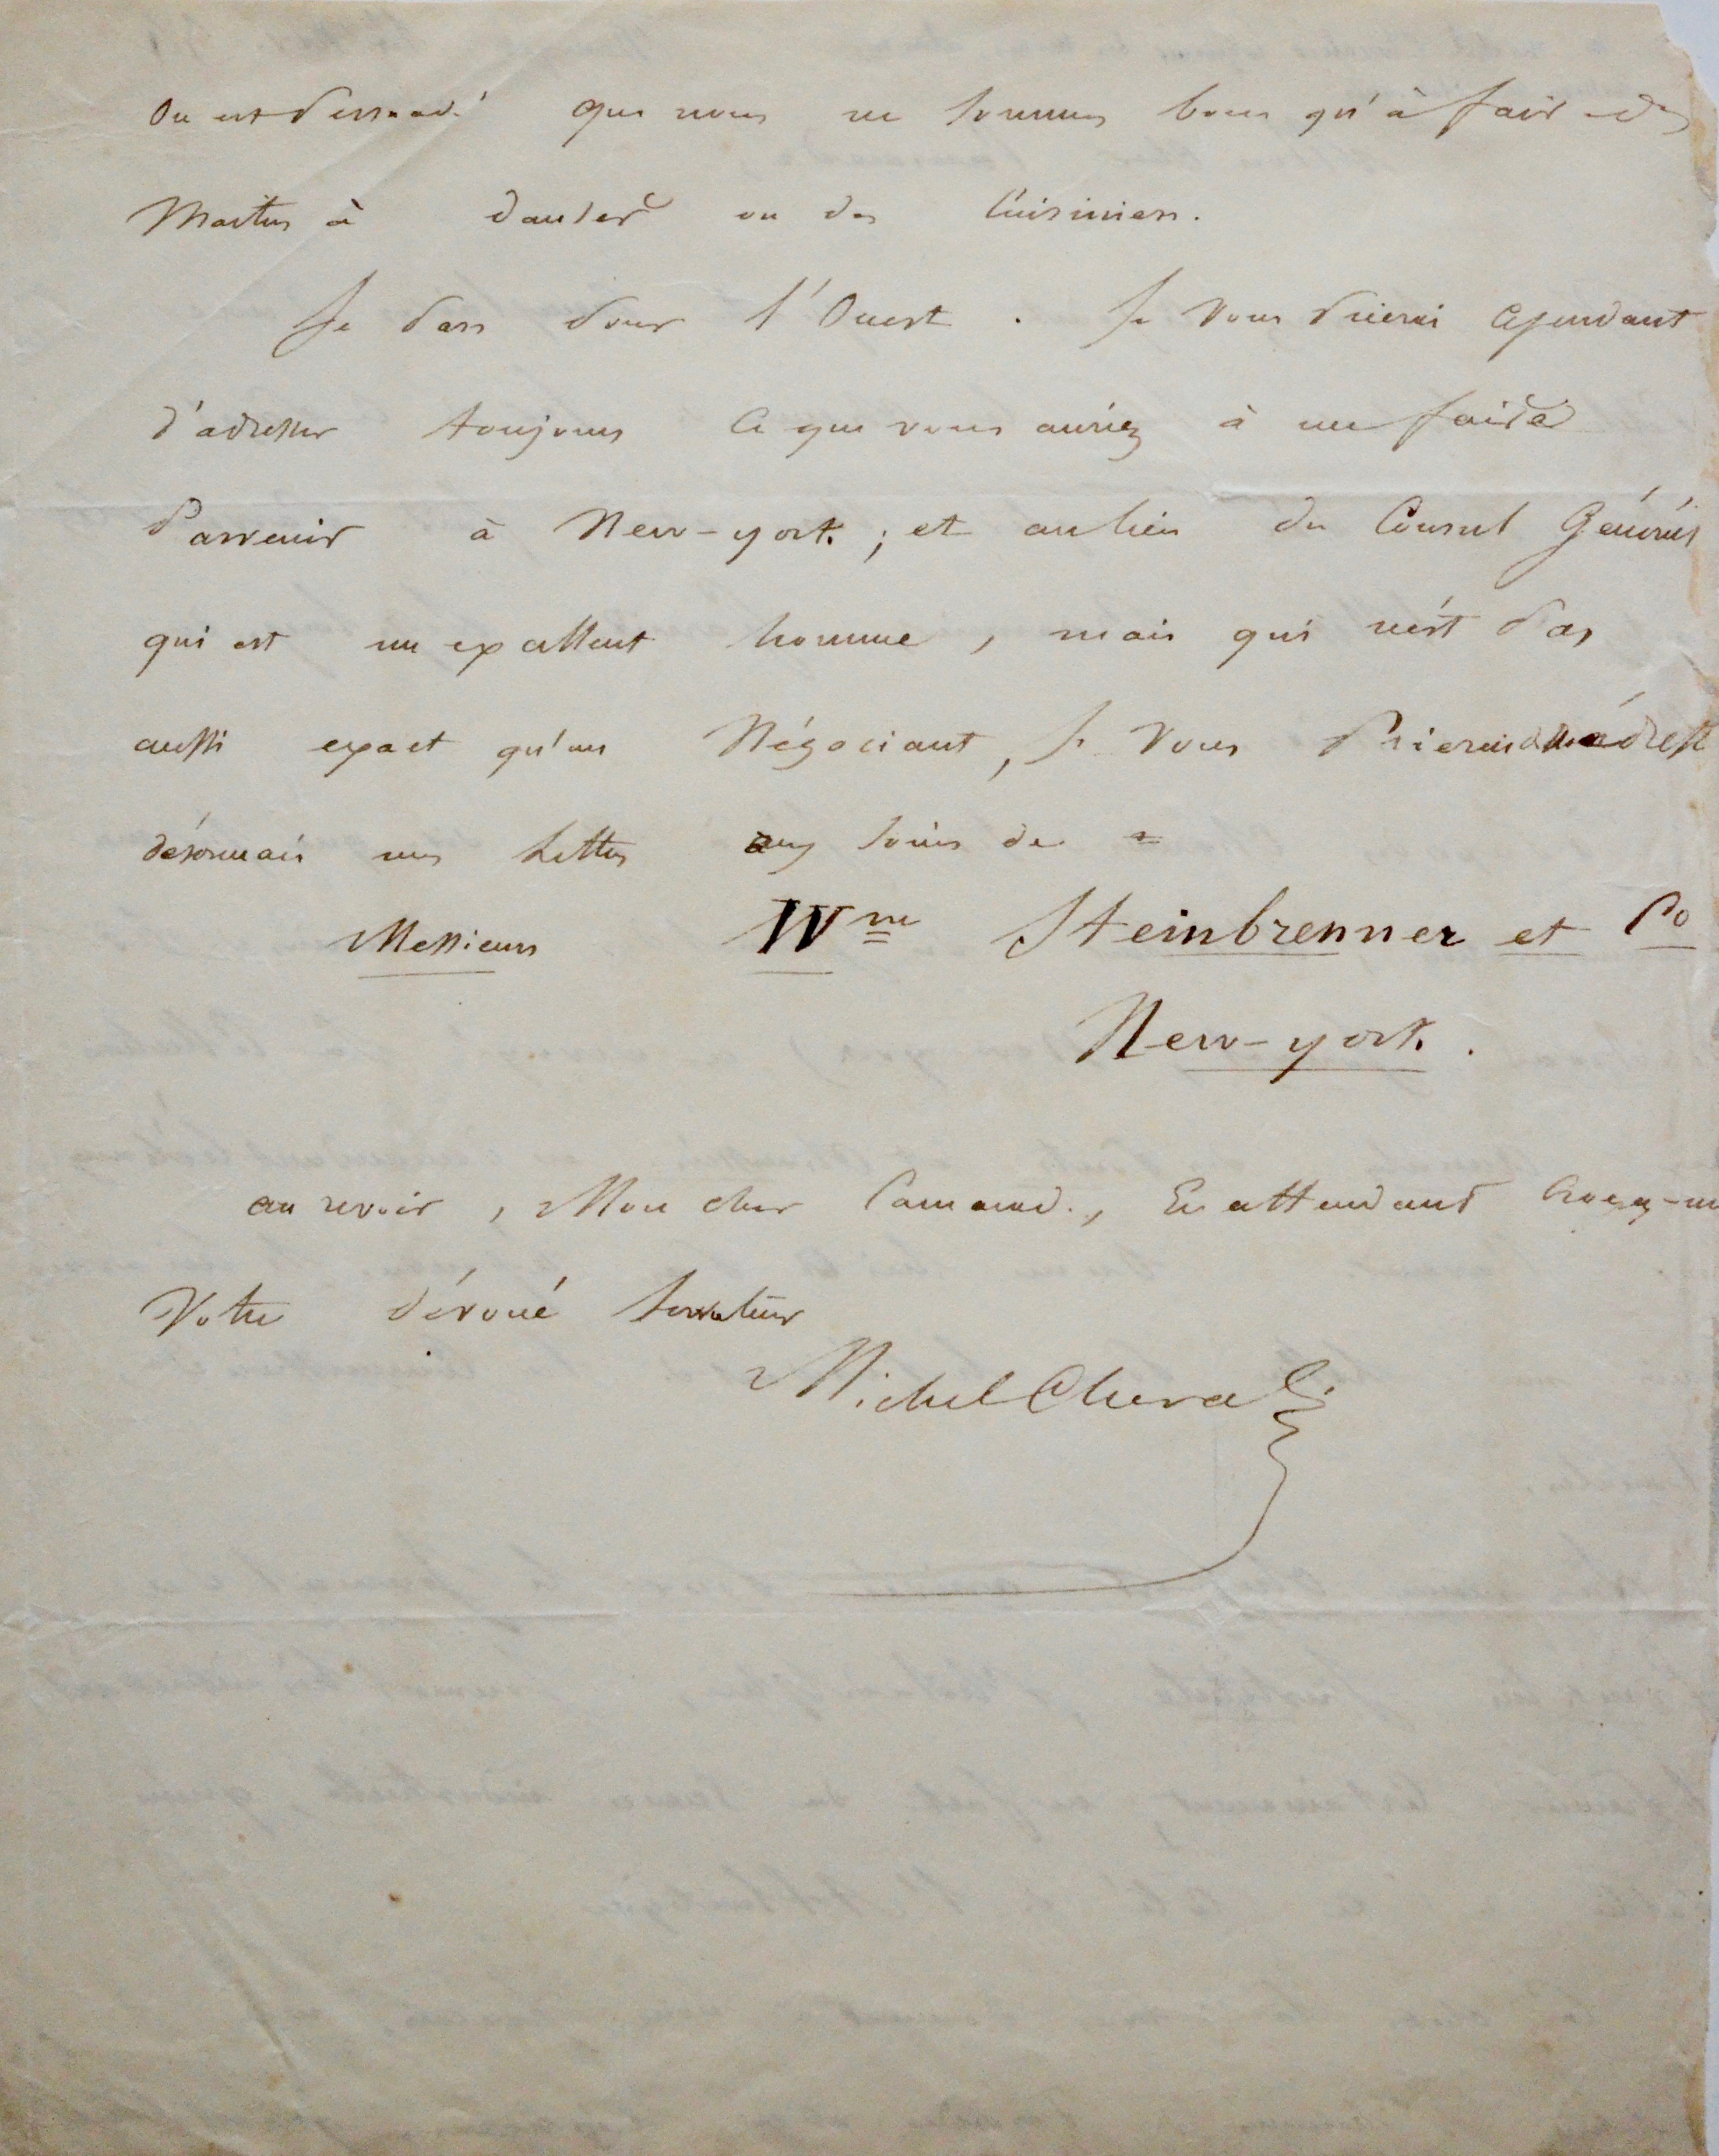 On est persuadé que nous ne sommes bons qu'à faire des
Maitres à danser ou des Cuisiniers.
Je pars pour l'Ouest. Je vous prierai cependant
d'adresser toujours ce que vous auriez à me faire
parvenir à New-york ; et au lieu du Consul Général
qui est un excellent homme, mais qui n'est pas
aussi exact qu'un Négociant, je vous prierais d'adresser
désormais mes lettres aux soins de =
Messieurs Wm Steinbrenner et Co
New-york.
au revoir, Mon cher Camarade, En attendant croyez-moi
Votre dévoué serviteur
Michel Chevalier